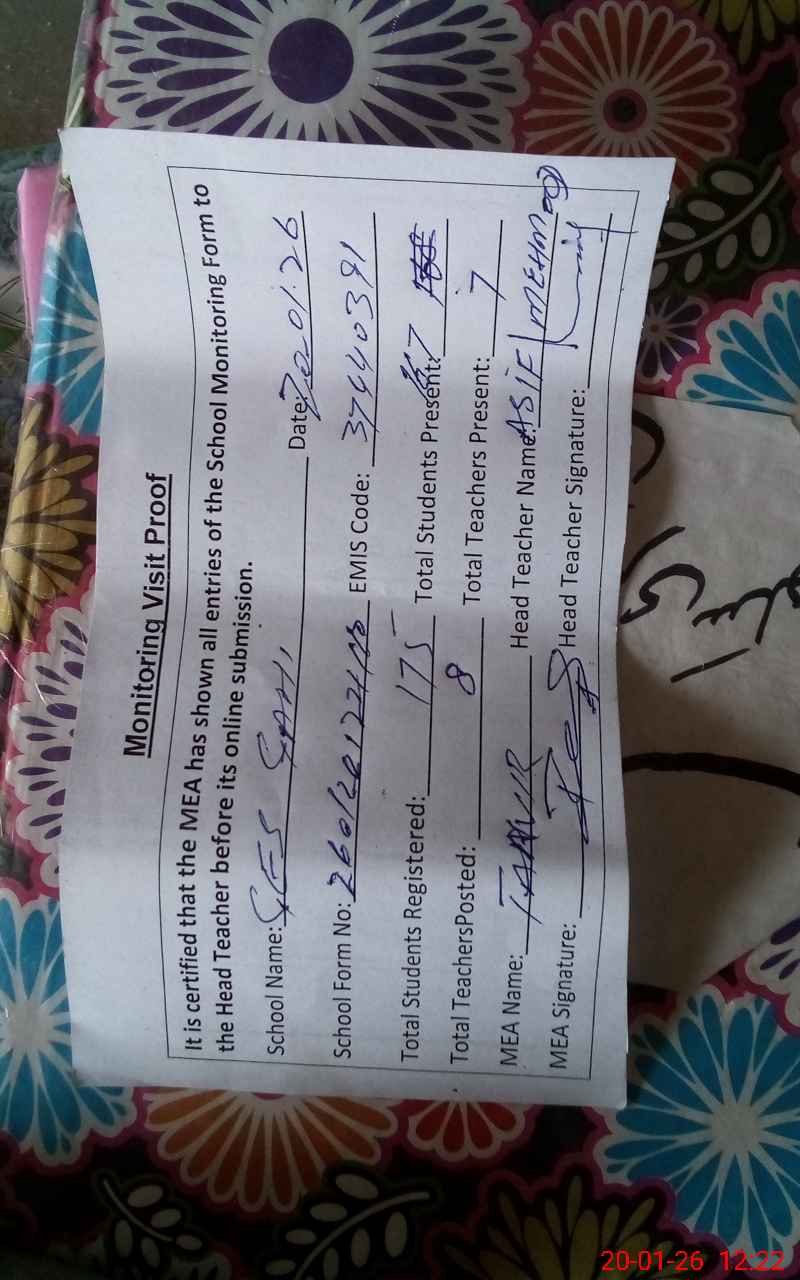 Monitoring Visit Proof
It is certified that the MEA has shown all entries of the School Monitoring Form to
the Head Teacher before its online submission.
School Name: GES GAHI Date: 20.01.26
School Form No: EMIS Code: 37440391
Total Students Registered: 175 Total Students Present: 167
Total TeachersPosted: 8 Total Teachers Present: 7
MEA Name: Head Teacher Name: ASIF MEHMOOD
MEA Signature: Head Teacher Signature:
20-01-26 12:22